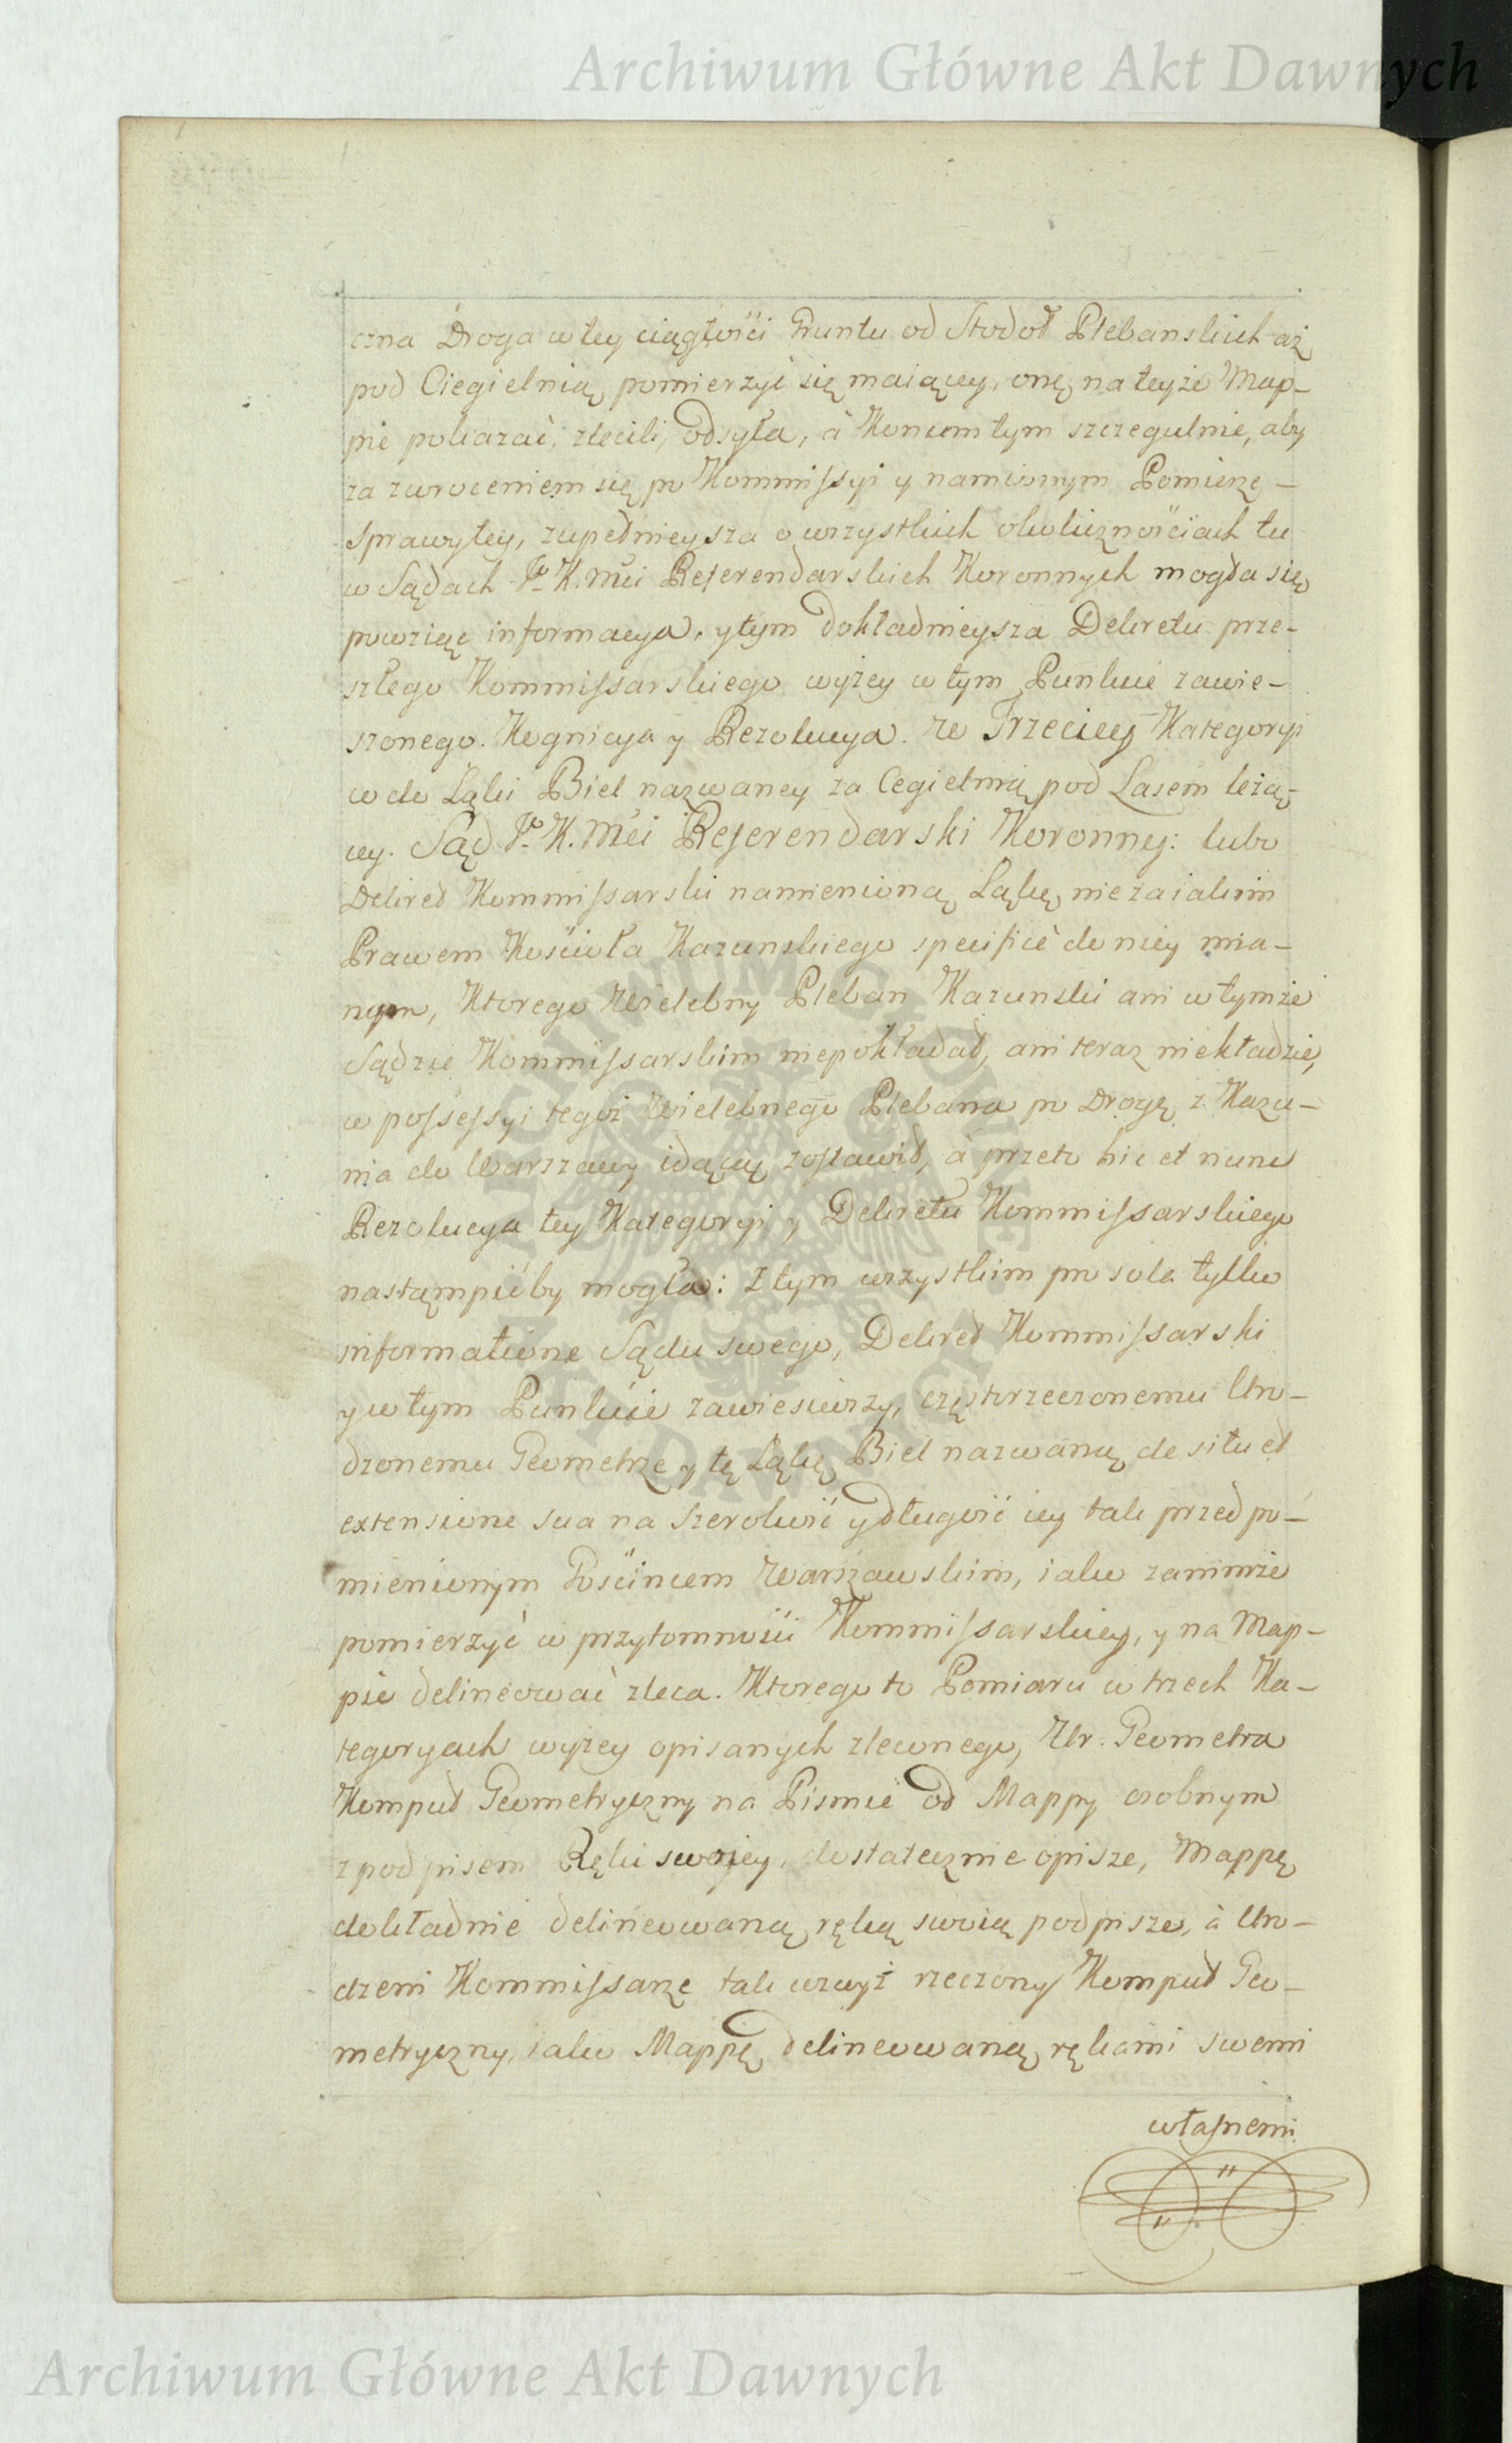 Archiwum Główne Akt Dawnych
czna Droga w tey ciągłości Gruntu od Stodoł Plebanskich aż
pod Ciegielnią pomierzyć się maiącey, onę na teyże Map-
pie pokazać, zlecili, odsyła, à Koncem tym szczegulnie, aby
za zwroceniem się po Kommissyi y namienionym Pomierze
Sprawy tey, zupełnieysza o wszystkich okolicznościach tu
w Sądach Jo K. Mći Referendarskich Koronnych mogła się
powziąc informacya, y tym dokładnieysza Dekretu prze-
szłego Kommissarskiego wyżey w tym Punkcie zawie-
szonego. Kognicya y Rezolucya. W Trzeciey Kategoryi
wdo Łąki Biel nazwaney za Cegielnią pod Lasem leżą-
cey. Sąd Jo K. Mći Referendarski Koronney: lubo
Dekret Kommissarski namienioną Łąkę nie za iakim
Prawem Kościoła Kazunskiego specificè do niey mia-
nym, Ktorego Wielebny Pleban Kazunski ani w tymże
Sądzie Kommissarskim niepokładał, ani teraz niekładzie,
w possessyi tegoż Wielebnego Plebana po Drogę z Kazu-
nia do Warszawy idącą zostawił, à przeto hic et nunc
Rezolucya tey Kategoryi y Dekretu Kommissarskiego
nastąmpićby mogła: Z tym wszystkim pro sola tylko
informatione Sądu swego, Dekret Kommissarski
y w tym Punkcie zawiesiwszy, częstorzeczonemu Uro-
dzonemu Geometrze y tę Łąkę Biel nazwaną de situ et
extensione sua na szerokość y długość iey tak przed po-
mienionym Gościncem Warszawskim, iako zanimże
pomierzyć w przytomności Kommissarskiey, y na Map-
pie delineować zleca. Ktorego to Pomiaru w trzech Ka-
tegoryach wyżey opisanych zleconego, Ur. Geometra
Komput Geometryczny na Pismie od Mappy osobnym
z podpisem Ręki swojey, dostatecznie opisze, Mappę
dokładnie delineowaną ręką swoią podpisze, à Uro-
dzeni Kommissarze tak wzwyż rzeczony Komput Geo-
metryczny, iako Mappę delineowaną rękami swemi
własnemi
Archiwum Główne Akt Dawnych